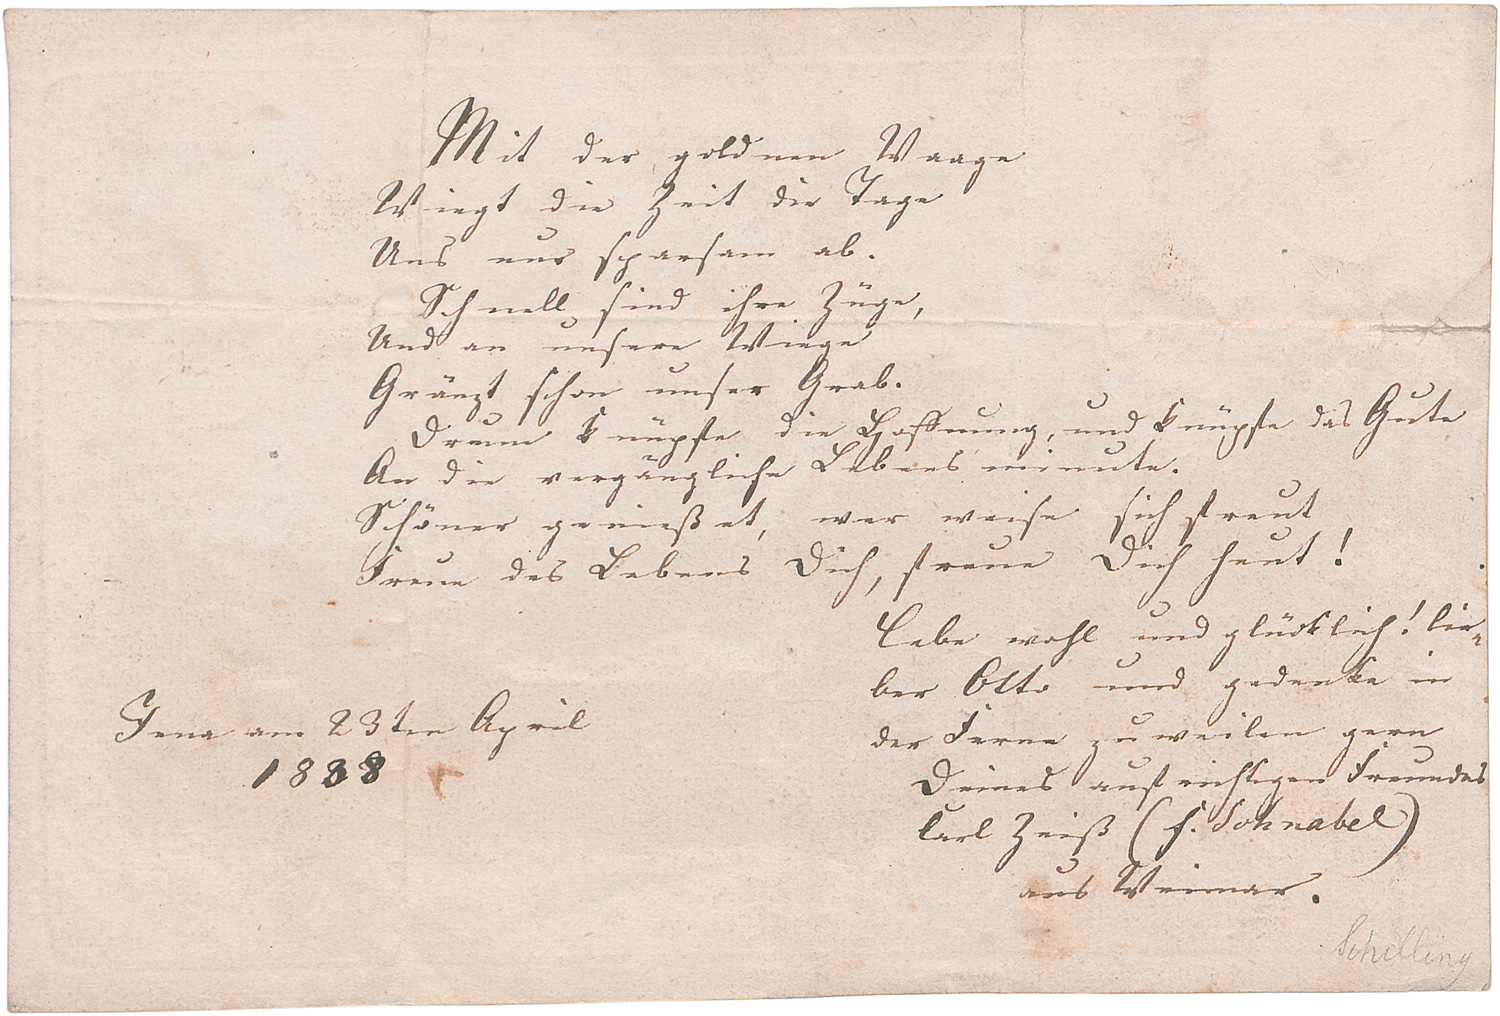 Mit der goldnen Waage
Wiegt die Zeit die Tage
Uns nur sparsam ab.
Schnell sind ihre Züge,
Und an unsere Wiege
Gränzt schon unser Grab.
Drum knüpfe die Hoffnung, und knüpfe das Gute
An die vergängliche Lebensminute.
Schöner genießet, wer weise sich freut
Freue des Lebens Dich, freue Dich heut!
Lebe wohl und glücklich! lie-
ber Otto und gedenke in
der Ferne zuweilen gern
Deines aufrichtigen Freundes
Carl Zeiß (s. Schnabel)
aus Weimar.
Jena am 23ten April
1838
Schilling